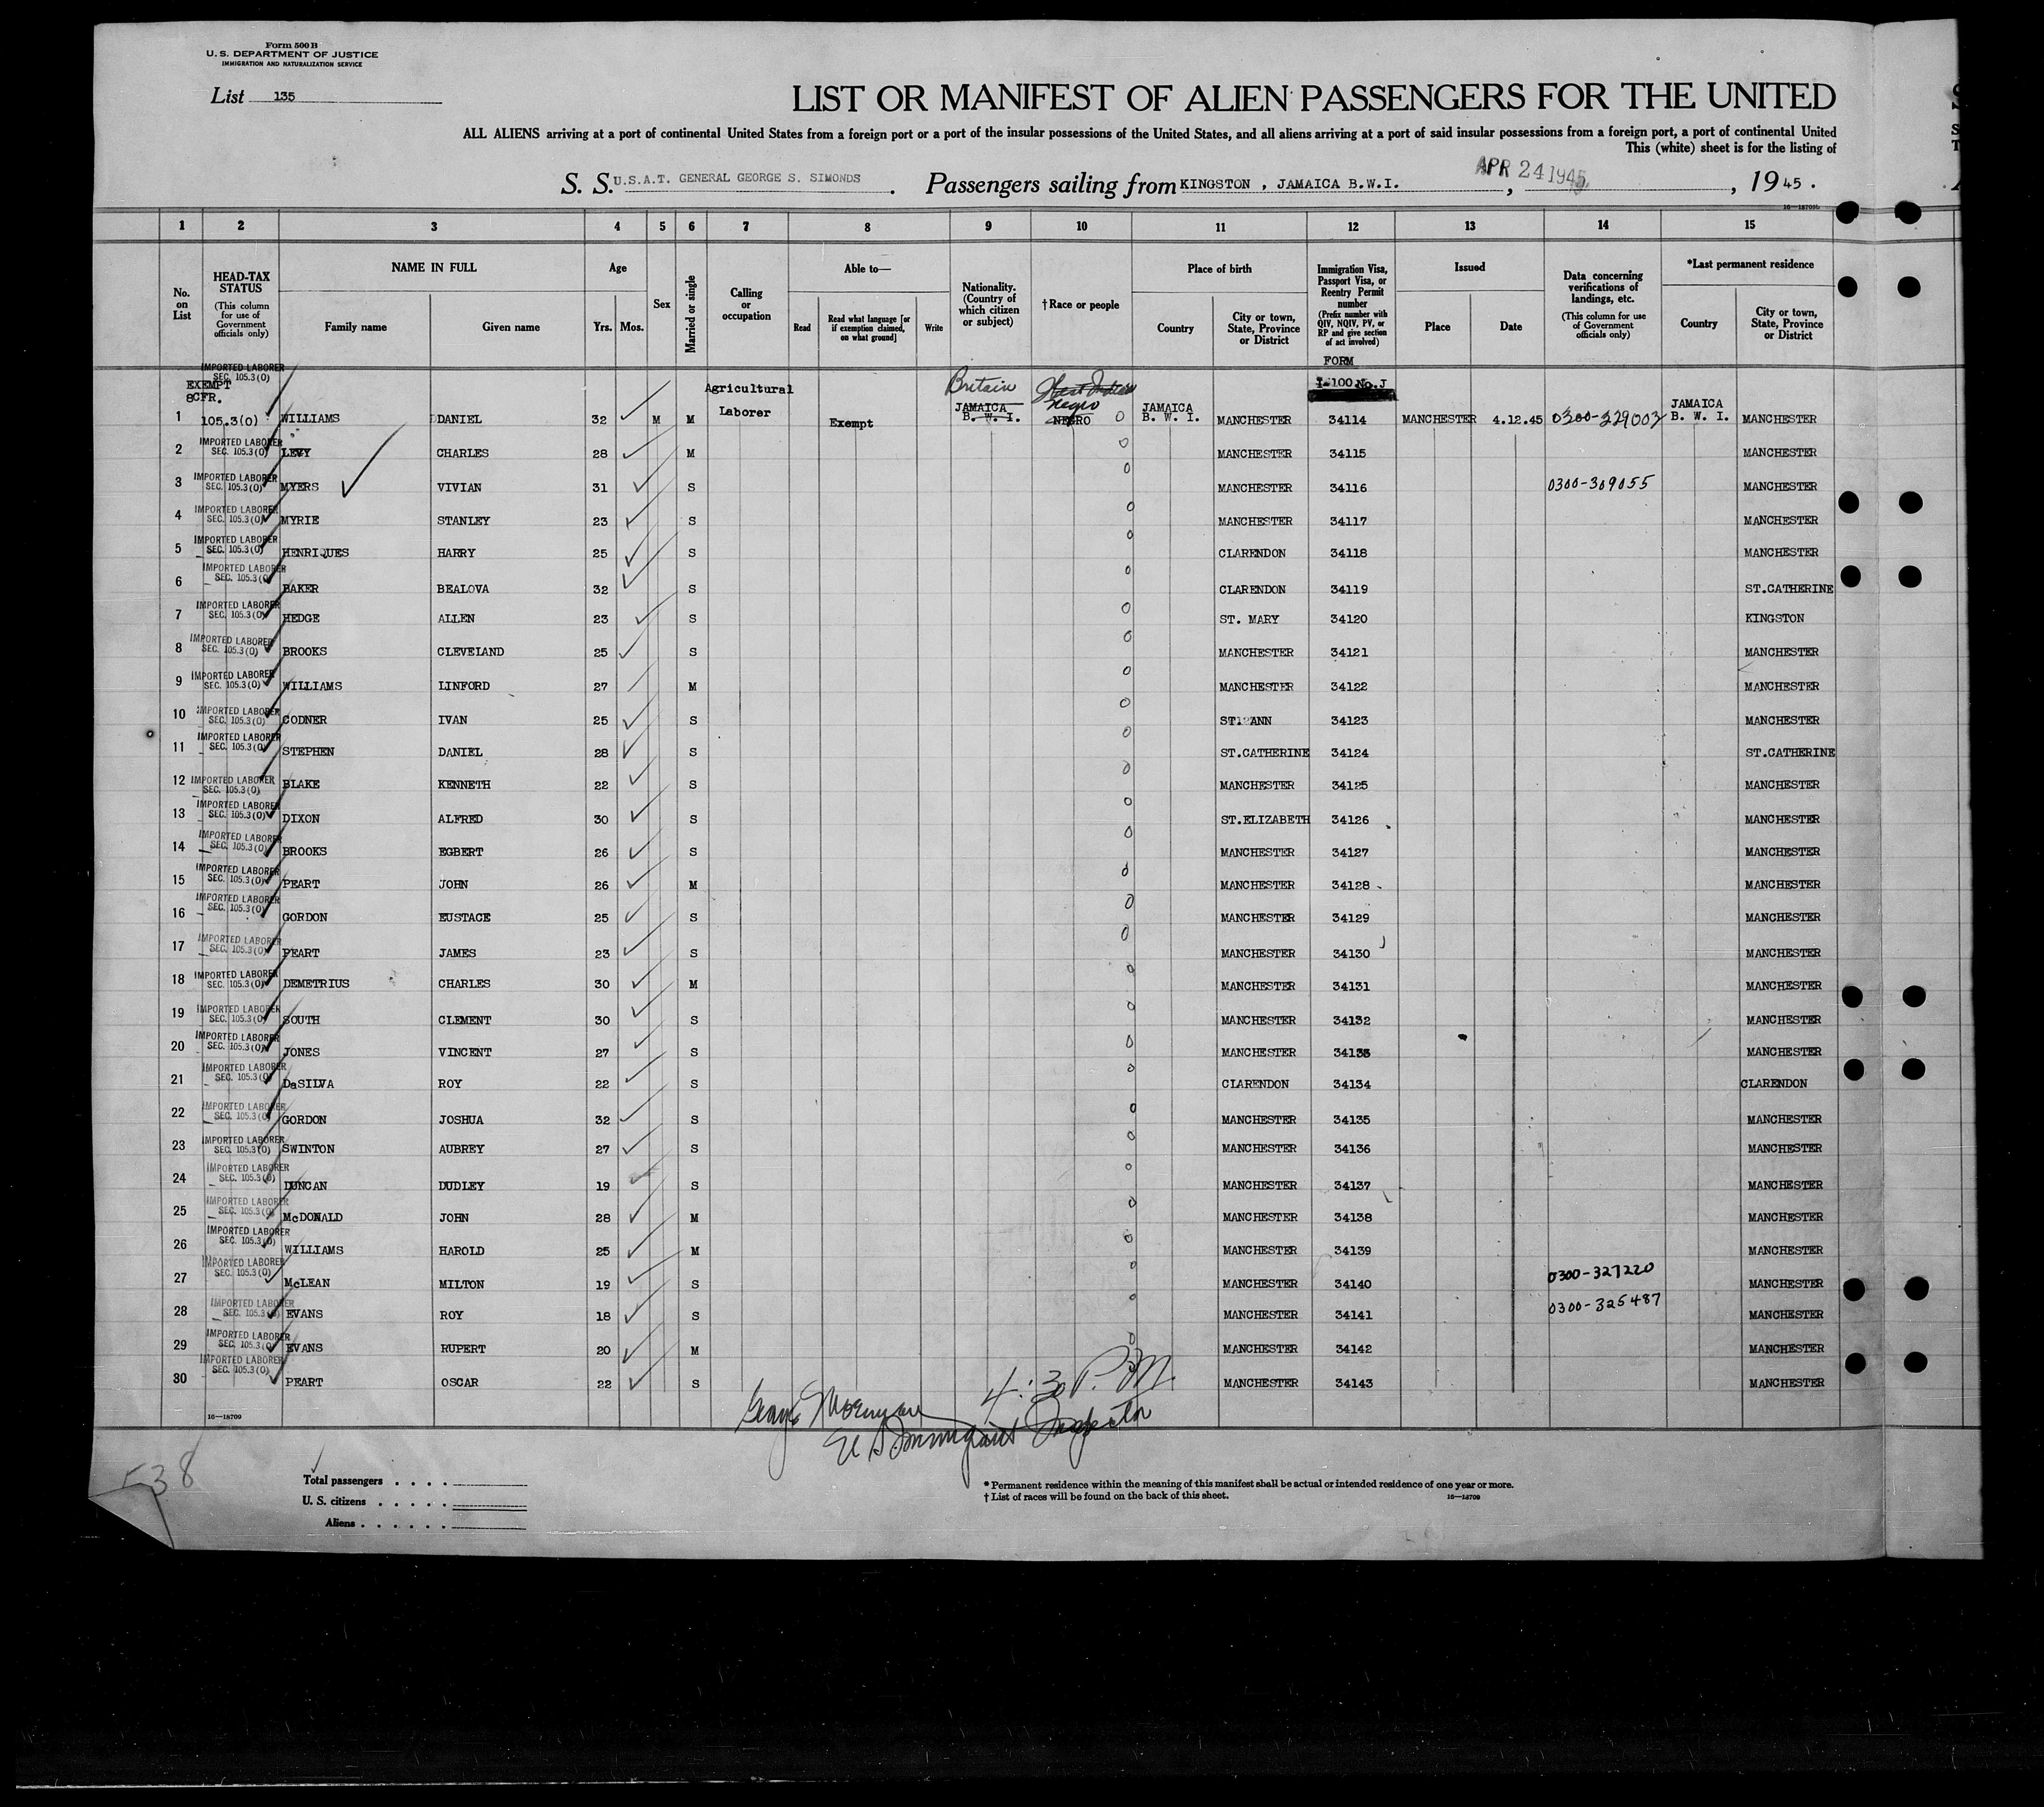 Form 500 B
U. S. DEPARTMENT OF JUSTICE
IMMIGRATION AND NATURALIZATION SERVICE
List 135
LIST OR MANIFEST OF ALIEN PASSENGERS FOR THE UNITED
ALL ALIENS arriving at a port of continental United States from a foreign port or a port of the insular possessions of the United States, and all aliens arriving at a port of said insular possessions from a foreign port, a port of continental United
This (white) sheet is for the listing of
S. S. U.S.A.T. GENERAL GEORGE S. SIMONDS . Passengers sailing from KINGSTON , JAMAICA B.W.I. , APR 24 1945 , 1945 .
16—18709
1 2 3 4 5 6 7 8 9 10 11 12 13 14 15
No. on List
HEAD-TAX STATUS (This column for use of Government officials only)
NAME IN FULL Family name Given name
Age Yrs. Mos.
Sex
Married or single
Calling or occupation
Able to— Read Read what language [or if exemption claimed, on what ground] Write
Nationality. (Country of which citizen or subject)
†Race or people
Place of birth Country City or town, State, Province or District
Immigration Visa, Passport Visa, or Reentry Permit number (Prefix number with QIV, NQIV, PV, or RP and give section of act involved)
Issued Place Date
Data concerning verifications of landings, etc. (This column for use of Government officials only)
*Last permanent residence Country City or town, State, Province or District
FORM
I-100 No. J
IMPORTED LABORER SEC. 105.3 (0)
EXEMPT 8CFR. Agricultural Britain West Indian
Laborer JAMAICA Negro JAMAICA JAMAICA
1 105.3(0) WILLIAMS DANIEL 32 M M Exempt B. W. I. NEGRO 0 B. W. I. MANCHESTER 34114 MANCHESTER 4.12.45 0300-329003 B. W. I. MANCHESTER
2 IMPORTED LABORER SEC. 105.3 (0) LEVY CHARLES 28 M 0 MANCHESTER 34115 MANCHESTER
3 IMPORTED LABORER SEC. 105.3 (0) MYERS VIVIAN 31 S 0 MANCHESTER 34116 0300-309055 MANCHESTER
4 IMPORTED LABORER SEC. 105.3 (0) MYRIE STANLEY 23 S 0 MANCHESTER 34117 MANCHESTER
5 IMPORTED LABORER SEC. 105.3 (0) HENRIQUES HARRY 25 S 0 CLARENDON 34118 MANCHESTER
6 IMPORTED LABORER SEC. 105.3 (0) BAKER BEALOVA 32 S 0 CLARENDON 34119 ST.CATHERINE
7 IMPORTED LABORER SEC. 105.3 (0) HEDGE ALLEN 23 S 0 ST. MARY 34120 KINGSTON
8 IMPORTED LABORER SEC. 105.3 (0) BROOKS CLEVELAND 25 S 0 MANCHESTER 34121 MANCHESTER
9 IMPORTED LABORER SEC. 105.3 (0) WILLIAMS LINFORD 27 M 0 MANCHESTER 34122 MANCHESTER
10 IMPORTED LABORER SEC. 105.3 (0) CODNER IVAN 25 S 0 ST. ANN 34123 MANCHESTER
11 IMPORTED LABORER SEC. 105.3 (0) STEPHEN DANIEL 28 S 0 ST.CATHERINE 34124 ST.CATHERINE
12 IMPORTED LABORER SEC. 105.3 (0) BLAKE KENNETH 22 S 0 MANCHESTER 34125 MANCHESTER
13 IMPORTED LABORER SEC. 105.3 (0) DIXON ALFRED 30 S 0 ST.ELIZABETH 34126 MANCHESTER
14 IMPORTED LABORER SEC. 105.3 (0) BROOKS EGBERT 26 S 0 MANCHESTER 34127 MANCHESTER
15 IMPORTED LABORER SEC. 105.3 (0) PEART JOHN 26 M 0 MANCHESTER 34128 MANCHESTER
16 IMPORTED LABORER SEC. 105.3 (0) GORDON EUSTACE 25 S 0 MANCHESTER 34129 MANCHESTER
17 IMPORTED LABORER SEC. 105.3 (0) PEART JAMES 23 S 0 MANCHESTER 34130 MANCHESTER
18 IMPORTED LABORER SEC. 105.3 (0) DEMETRIUS CHARLES 30 M 0 MANCHESTER 34131 MANCHESTER
19 IMPORTED LABORER SEC. 105.3 (0) SOUTH CLEMENT 30 S 0 MANCHESTER 34132 MANCHESTER
20 IMPORTED LABORER SEC. 105.3 (0) JONES VINCENT 27 S 0 MANCHESTER 34133 MANCHESTER
21 IMPORTED LABORER SEC. 105.3 (0) DaSILVA ROY 22 S 0 CLARENDON 34134 CLARENDON
22 IMPORTED LABORER SEC. 105.3 (0) GORDON JOSHUA 32 S 0 MANCHESTER 34135 MANCHESTER
23 IMPORTED LABORER SEC. 105.3 (0) SWINTON AUBREY 27 S 0 MANCHESTER 34136 MANCHESTER
24 IMPORTED LABORER SEC. 105.3 (0) DUNCAN DUDLEY 19 S 0 MANCHESTER 34137 MANCHESTER
25 IMPORTED LABORER SEC. 105.3 (0) McDONALD JOHN 28 M 0 MANCHESTER 34138 MANCHESTER
26 IMPORTED LABORER SEC. 105.3 (0) WILLIAMS HAROLD 25 M 0 MANCHESTER 34139 MANCHESTER
27 IMPORTED LABORER SEC. 105.3 (0) McLEAN MILTON 19 S 0 MANCHESTER 34140 0300-327220 MANCHESTER
28 IMPORTED LABORER SEC. 105.3 (0) EVANS ROY 18 S 0 MANCHESTER 34141 0300-325487 MANCHESTER
29 IMPORTED LABORER SEC. 105.3 (0) EVANS RUPERT 20 M 0 MANCHESTER 34142 MANCHESTER
30 IMPORTED LABORER SEC. 105.3 (0) PEART OSCAR 22 S MANCHESTER 34143 MANCHESTER
4:30 P.M.
U S Immigrant Inspector
16—18709
538
Total passengers . . . .
U. S. citizens . . . . .
Aliens . . . . . .
* Permanent residence within the meaning of this manifest shall be actual or intended residence of one year or more.
† List of races will be found on the back of this sheet.
16—18709